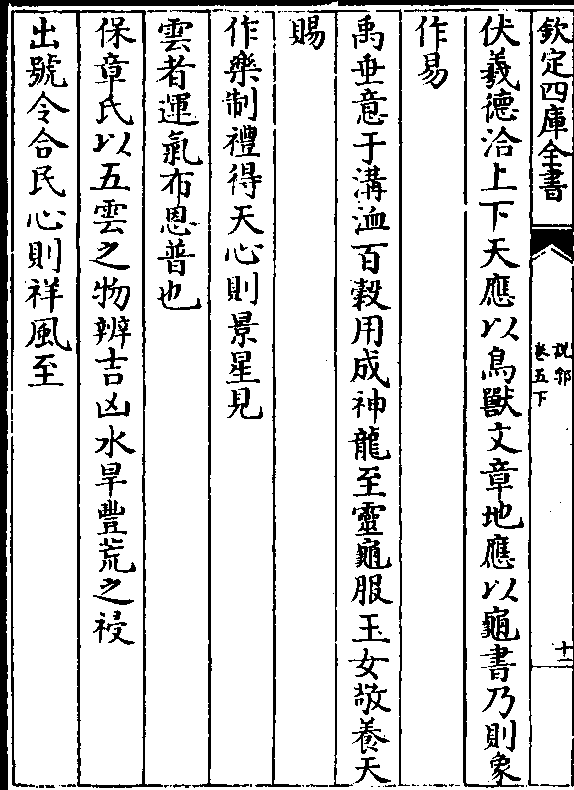 欽定四庫全書
說郛
卷五下
十二
伏羲德洽上下天應以鳥獸文章地應以龜書乃則象
作易
禹垂意于溝洫百穀用成神龍至靈龜服玉女敬養天
賜
作樂制禮得天心則景星見
雲者運氣布恩普也
保章氏以五雲之物辨吉凶水旱豐荒之祲
出號令合民心則祥風至